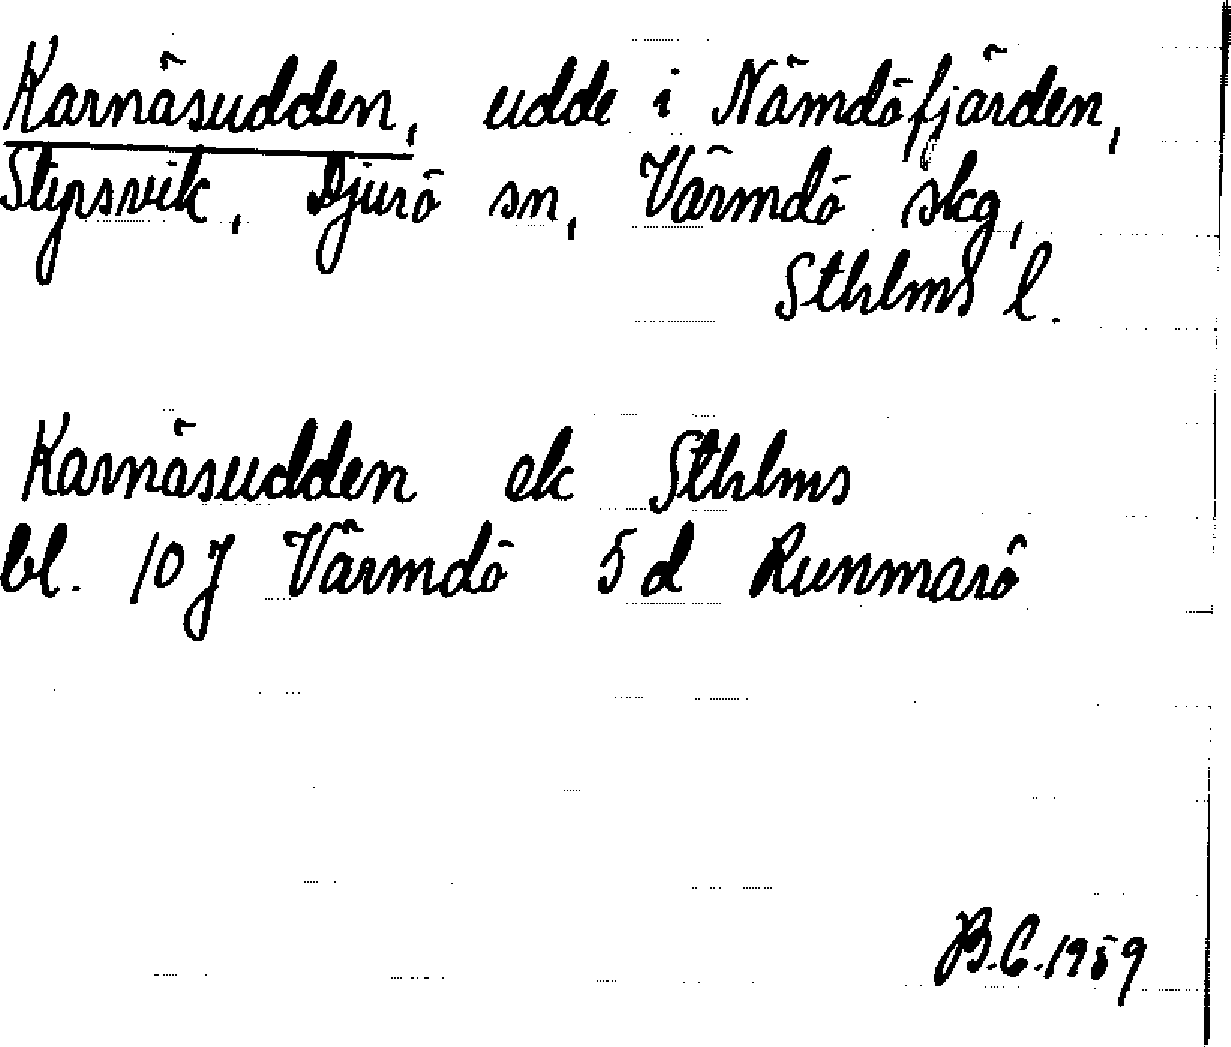 Karnäsudden, udde i Nämdöfjärden,
Styrsvik, Djurö sn, Värmdö skg,
Sthlms l.
Karnäsudden ek Sthlms
bl. 10 J Värmdö 5 d Runmarö
B.C. 1959